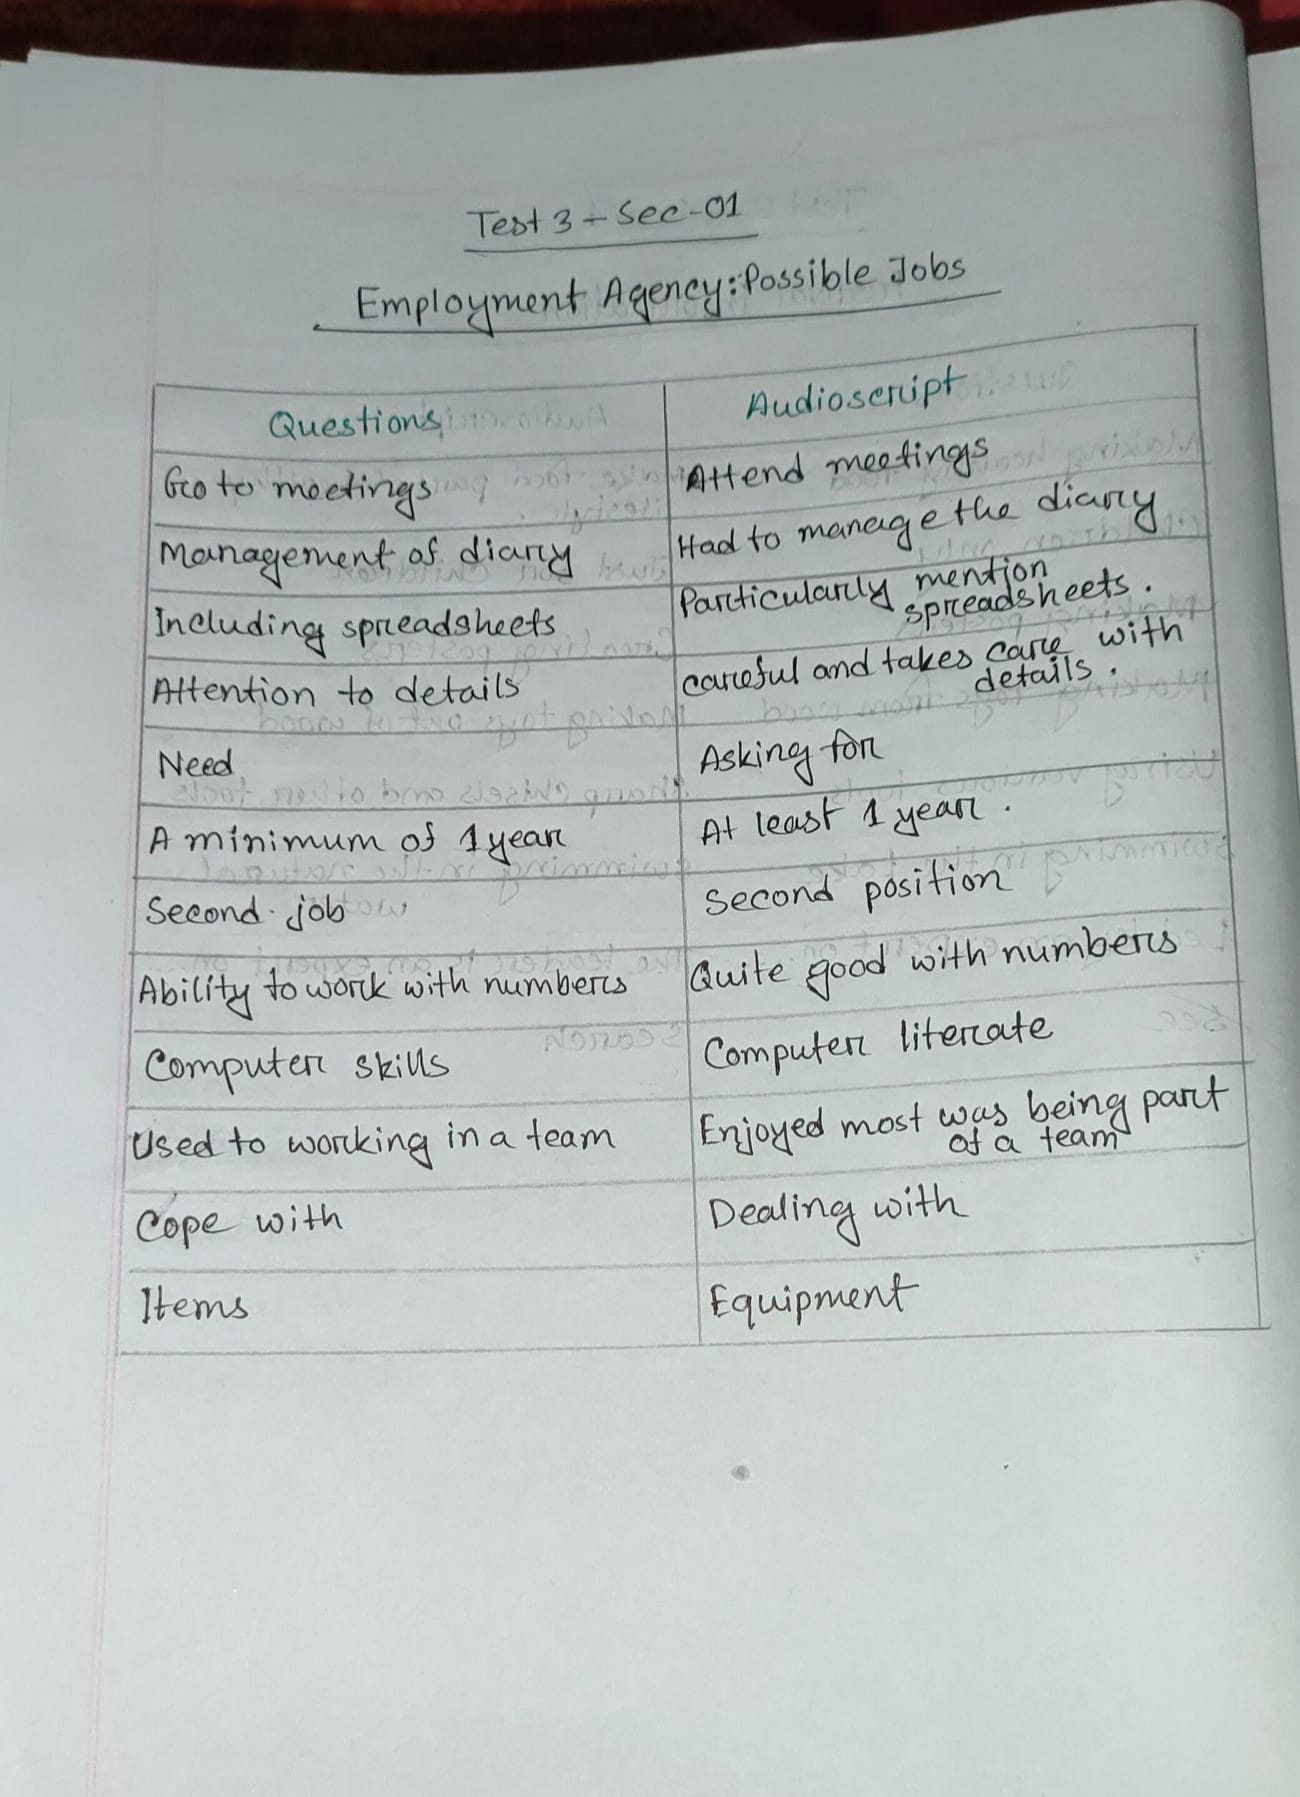 Test 3 - Sec-01
Employment Agency: Possible Jobs
Questions Audioscript
Go to meetings Attend meetings
Management of diary Had to manage the diary
Including spreadsheets Particularly mention spreadsheets.
Attention to details careful and takes care with details.
Need Asking for
A minimum of 1 year At least 1 year.
Second job Second position
Ability to work with numbers Quite good with numbers
Computer skills Computer literate
Used to working in a team Enjoyed most was being part of a team
Cope with Dealing with
Items Equipment